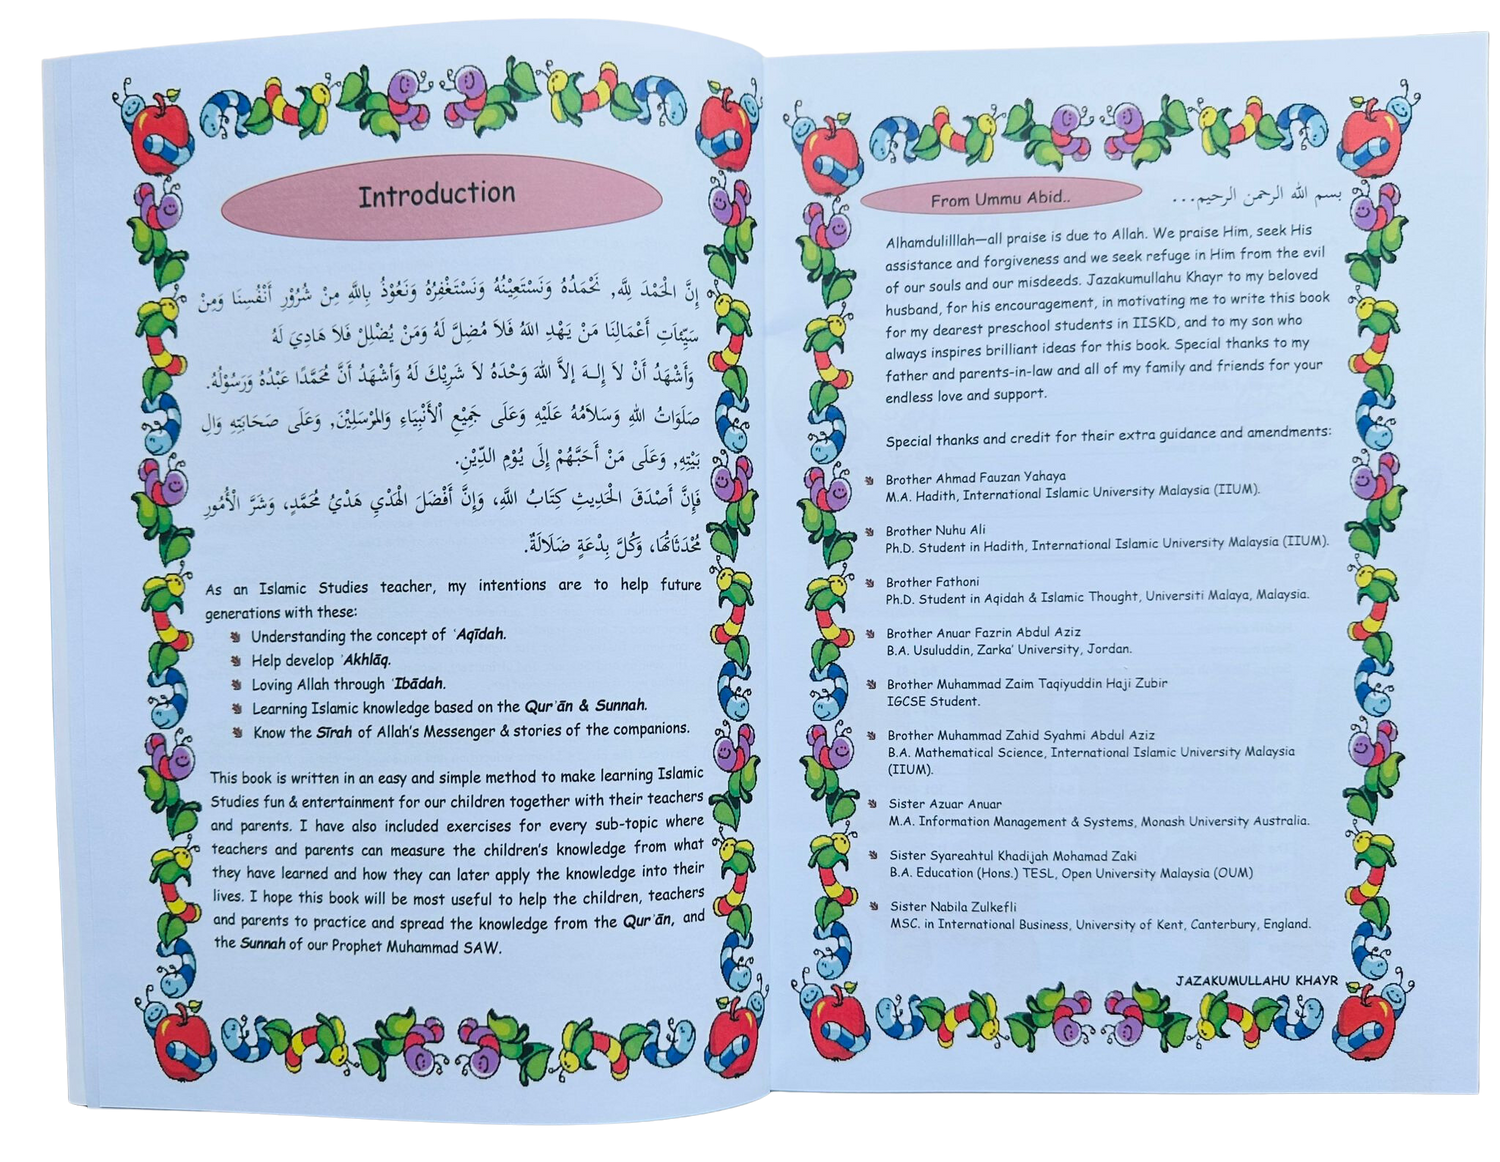 Introduction
إِنَّ الْحَمْدَ لِلَّه, نَحْمَدُهُ وَنَسْتَعِيْنُهُ وَنَسْتَغْفِرُهُ وَنَعُوْذُ بِاللَّهِ مِنْ شُرُوْرِ أَنْفُسِنَا وَمِنْ
سَيِّئَاتِ أَعْمَالِنَا مَنْ يَهْدِ اللهُ فَلاَ مُضِلَّ لَهُ وَمَنْ يُضْلِلْ فَلاَ هَادِيَ لَهُ
وَأَشْهَدُ أَنْ لاَ إِلـهَ إلاَّ اللهَ وَحْدَهُ لاَ شَرِيْكَ لَهُ وَأَشْهَدُ أَنَّ مُحَمَّدًا عَبْدُهُ وَرَسُوْلُهُ.
صَلَوَاتُ اللهِ وَسَلاَمُهُ عَلَيْهِ وَعَلَى جَمِيْعِ اْلأَنْبِيَاءِ وَالمُرْسَلِيْنَ, وَعَلَى صَحَابَتِهِ وَالِ
بَيْتِهِ, وَعَلَى مَنْ أَحَبَّهُمْ إِلَى يُوْمِ الدِّيْنِ.
فَإِنَّ أَصْدَقَ الْحَدِيثِ كِتَابُ اللَّهِ، وَإِنَّ أَفْضَلَ الْهَدْيِ هَدْيُ مُحَمَّدٍ، وَشَرَّ الْأُمُورِ
مُحْدَثَاتُهَا، وَكُلَّ بِدْعَةٍ ضَلَالَةٌ.
As an Islamic Studies teacher, my intentions are to help future
generations with these:
Understanding the concept of ʿAqīdah.
Help develop ʾAkhlāq.
Loving Allah through ʿIbādah.
Learning Islamic knowledge based on the Qurʾān & Sunnah.
Know the Sīrah of Allah's Messenger & stories of the companions.
This book is written in an easy and simple method to make learning Islamic
Studies fun & entertainment for our children together with their teachers
and parents. I have also included exercises for every sub-topic where
teachers and parents can measure the children's knowledge from what
they have learned and how they can later apply the knowledge into their
lives. I hope this book will be most useful to help the children, teachers
and parents to practice and spread the knowledge from the Qurʾān, and
the Sunnah of our Prophet Muhammad SAW.
From Ummu Abid.. بسم الله الرحمن الرحيم...
Alhamdulilllah—all praise is due to Allah. We praise Him, seek His
assistance and forgiveness and we seek refuge in Him from the evil
of our souls and our misdeeds. Jazakumullahu Khayr to my beloved
husband, for his encouragement, in motivating me to write this book
for my dearest preschool students in IISKD, and to my son who
always inspires brilliant ideas for this book. Special thanks to my
father and parents-in-law and all of my family and friends for your
endless love and support.
Special thanks and credit for their extra guidance and amendments:
Brother Ahmad Fauzan Yahaya
M.A. Hadith, International Islamic University Malaysia (IIUM).
Brother Nuhu Ali
Ph.D. Student in Hadith, International Islamic University Malaysia (IIUM).
Brother Fathoni
Ph.D. Student in Aqidah & Islamic Thought, Universiti Malaya, Malaysia.
Brother Anuar Fazrin Abdul Aziz
B.A. Usuluddin, Zarka' University, Jordan.
Brother Muhammad Zaim Taqiyuddin Haji Zubir
IGCSE Student.
Brother Muhammad Zahid Syahmi Abdul Aziz
B.A. Mathematical Science, International Islamic University Malaysia
(IIUM).
Sister Azuar Anuar
M.A. Information Management & Systems, Monash University Australia.
Sister Syareahtul Khadijah Mohamad Zaki
B.A. Education (Hons.) TESL, Open University Malaysia (OUM)
Sister Nabila Zulkefli
MSC. in International Business, University of Kent, Canterbury, England.
JAZAKUMULLAHU KHAYR